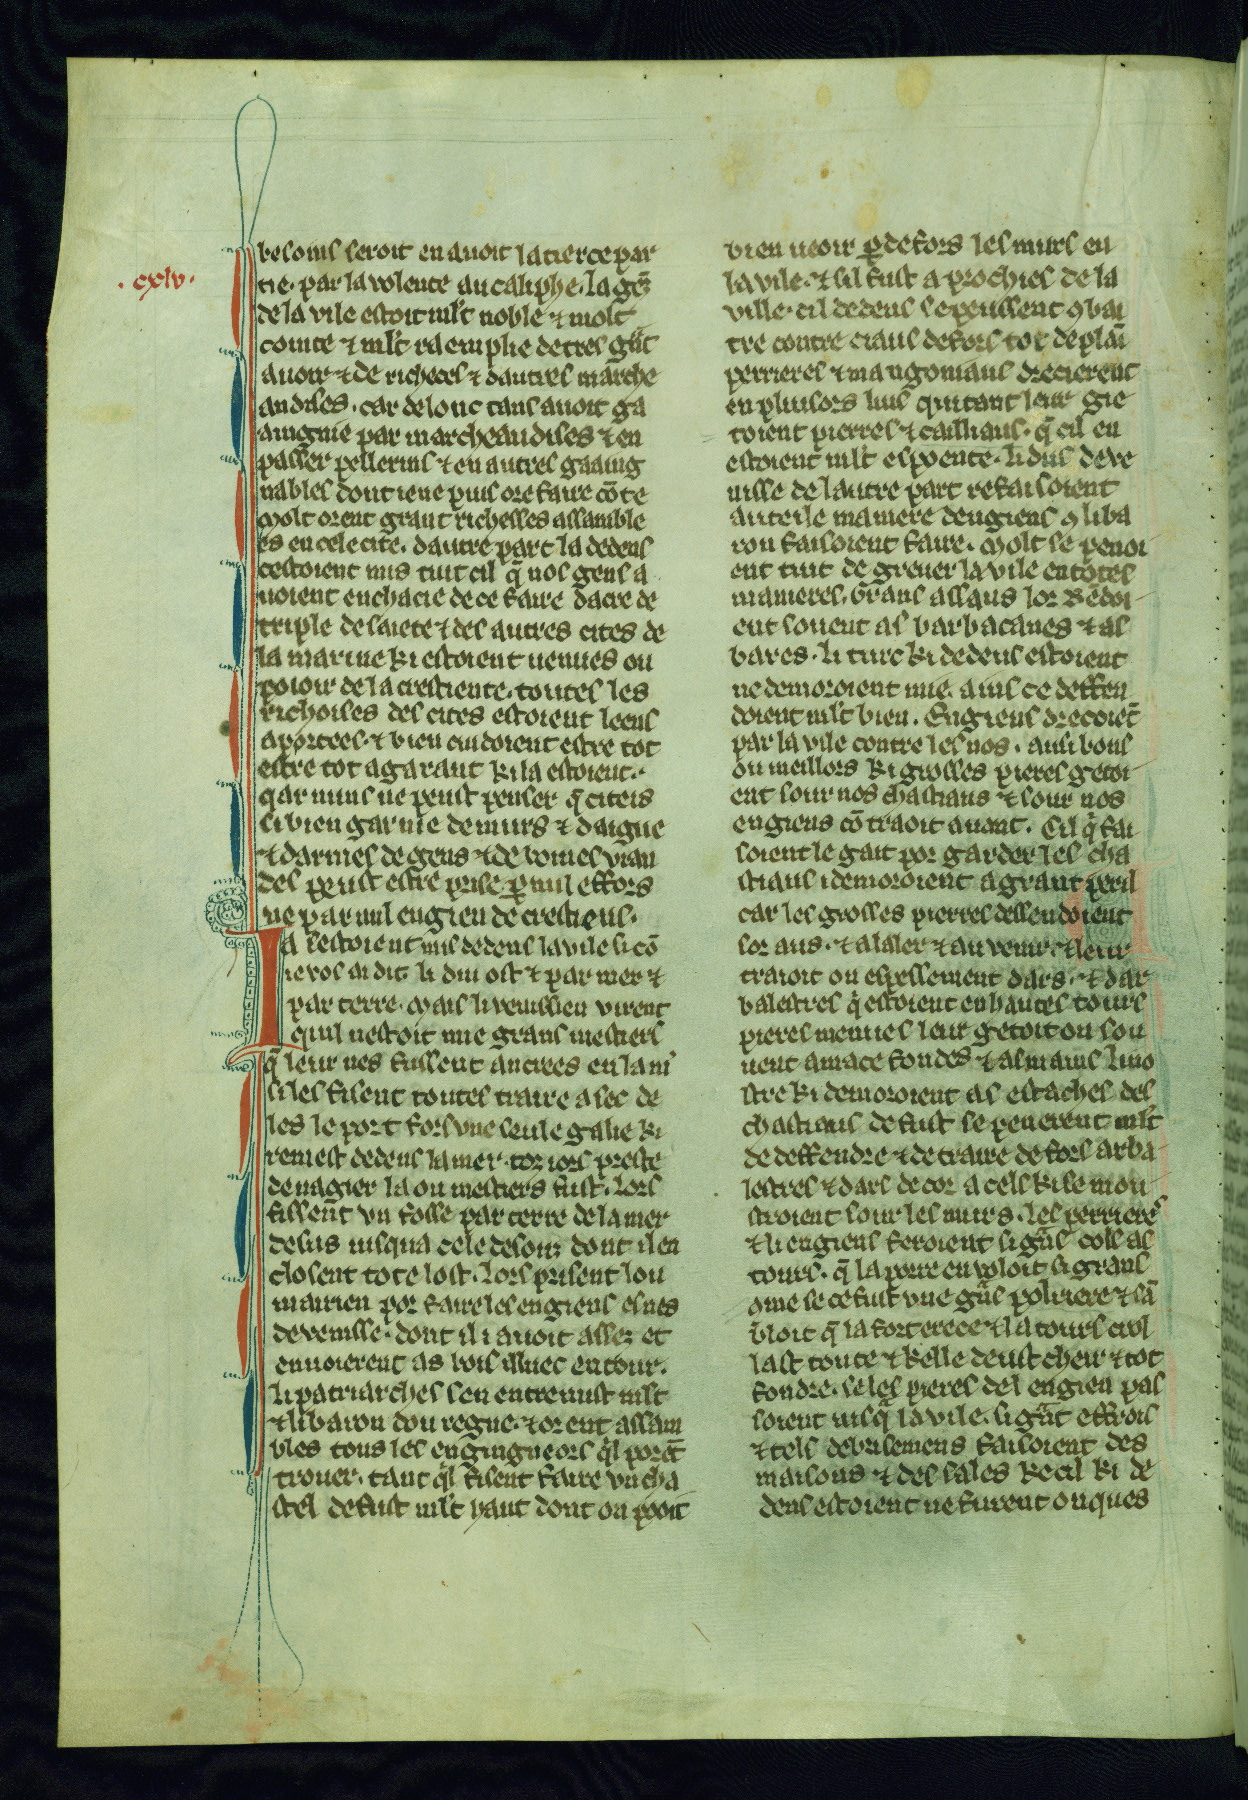 .cxlv.
besoins seroit en avoit la tierce par
tie. par la volente au caliphe. la gēt
de la vile estoit ml't noble ⁊ molt
cointe ⁊ ml't raemplie de tres gr̄t
avoir ⁊ de richeces ⁊ dautres marche
andises. car de lonc tans avoit ga
aingnie par marcheandises ⁊ en
passer pellerins ⁊ en autres gaaing
nables dont ie ne puis ore faire cōte
Molt orent grant richesses assamble
es en cele cite. dautre part la dedens
cestoient mis tuit cil q̄ nos gens a
voient enchacie de ce faire dacre de
triple de saiete ⁊ des autres cites de
la marine ki estoient venues ou
pooir de la crestiente. toutes les
richoises des cites estoient leens
aportees. ⁊ bien cuidoient estre tot
estre tot a garant ki la estoient.
qar nuns ne peust penser q̄ citeis
si bien garnie de murs ⁊ daigue
⁊ darmes de gens ⁊ de bones vian
des peust estre prise ꝑ nul effors
ne par nul engien de crestiens.
Ia sestoient mis dedens la vile si cō
ie vos ai dit li dui ost ⁊ par mer ⁊
par terre. Mais li venissien virent
quil nestoit mie grans mestiers
q̄ leur nes fussent ancrees en la m'
si les fisent toutes traire a sec de
les le port fors une seule galie ki
remest dedens la mer. toz iors preste
de nagier la ou mestiers fust. Lors
fissent un fosse par terre de la mer
desus iusqua cele desouz dont il en
closent tote lost. Lors prisent lou
mairien por faire les engiens es nes
de venisse. dont il i avoit assez et
envoierent as bois illuec entour.
li patriarches sen entremist ml't
⁊ li baron dou regne. ⁊ orent assam
bles tous les engingneors q̄l porēt
trover. tant q̄l fisent faire un cha
stel de fust ml't haut dont on pooit
bien veoir ꝑ defors les murs en
la vile. ⁊ sil fust aprochies de la
ville. cil dedens se peussent ꝯbat
tre contre ciaus defors tot de plai
perrieres ⁊ mangoniaus drecierent
en pluisors lius qui tant leur gie
toient pierres ⁊ cailliaus. q̄ cil en
estoient ml't espoente. li dus de ve
nisse de lautre part refaisoient
auteile maniere dengiens ꝯ li ba
ron faisoient faire. Molt se penoi
ent tuit de grever la vile en tōtes
manieres. Grans assaus lor Redoi
ent sovent as barbacanes ⁊ as
bares. li turc ki dedens estoient
ne demoroient mie. ains ce deffen
doient ml't bien. Engiens drecoiēt
par la vile contre les nos. ausi bons
ou meillors ki grosses pieres getoi
ent sour nos chastiaus ⁊ sour nos
engiens cō traoit avant. Cil q̄ fai
soient le gait por garder les cha
stiaus i demoroient a grant peril
car les grosses pierres dessendoient
sor aus. ⁊ al aler ⁊ au venir. ⁊ leur
traioit on espessement dars. ⁊ dar
balestres q̄ estoient en hautes tours
pieres menues leur getoit on sou
vent a mace fondes ⁊ as mains. li no
stre ki demoroient as estaches des
chastiaus de fust se penerent ml't
de deffendre ⁊ de traire de fors arba
lestres ⁊ dars de cor a cels ki se mou
stroient sour les murs. les perrieres
⁊ li engiens feroient si gr̄s cols as
tours. q̄ la porre en voloit si grans
ome se ce fust une gr̄s polriere ⁊ sā
bloit q̄ la forterece ⁊ la tours crol
last toute ⁊ kelle deust cheir ⁊ tot
fondre. se les pieres del engien pas
soient iusq̄ la vile. si gr̄t effrois
⁊ tels debrisemens faisoient des
maisons ⁊ des sales ke cil ki de
dens estoient ne furent onques